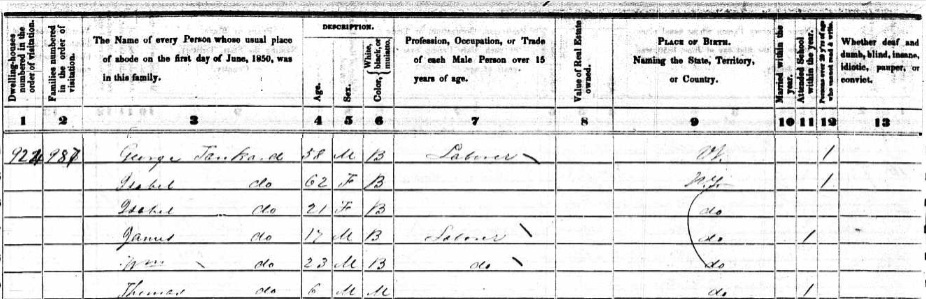 Dwelling-houses numbered in the order of visitation.
Families numbered in the order of visitation.
The Name of every Person whose usual place of abode on the first day of June, 1850, was in this family.
DESCRIPTION.
Age.
Sex.
Color, { White, black, or mulatto.
Profession, Occupation, or Trade of each Male Person over 15 years of age.
Value of Real Estate owned.
PLACE OF BIRTH. Naming the State, Territory, or Country.
Married within the year.
Attended School within the year.
Persons over 20 y'rs of age who cannot read & write.
Whether deaf and dumb, blind, insane, idiotic, pauper, or convict.
1 2 3 4 5 6 7 8 9 10 11 12 13
924 987 George Tankard 58 M B Laborer 1
Isabel do 62 F B N.Y. 1
Isabel do 21 F B do
James do 17 M B Laborer do 1
Wm do 23 M B do do
Thomas do 6 M M do 1